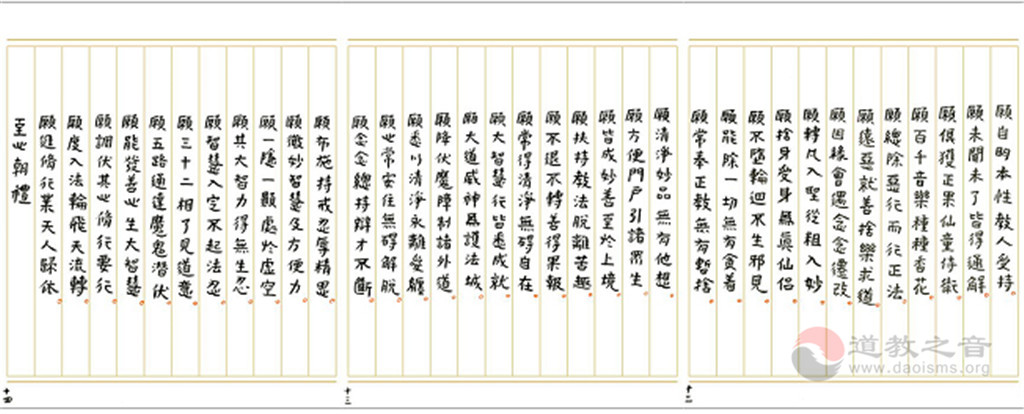 願自明本性教人受持
願未聞未了皆得通解
願俱獲正果仙童侍衛
願百千音樂種種香花
願總除惡行而行正法
願遠惡就善捨樂求道
願因緣會遇念念遷改
願轉凡入聖從粗入妙
願捨身受身爲眞仙侣
願不墮輪迴不生邪見
願能除一切無有貪着
願常奉正教無有暫捨
十二
願清淨妙品無有他想
願方便門戶引諸眾生
願皆成妙善至於上境
願扶持教法脱離苦趣
願不退不轉善得果報
願常得清淨無碍自在
願大智慧行皆悉成就
願大道威神爲護法城
願降伏魔障制諸外道
願悉以清淨永離愛纏
願心常安住無碍解脱
願念念總持辯才不斷
十三
願布施持戒忍辱精思
願微妙智慧及方便力
願一隱一顯處於虛空
願其大智力得無生忍
願智慧入空不起法忍
願三十二相了見道意
願五路通達魔鬼潜伏
願能發善心生大智慧
願調伏其心脩行要行
願度入法輪飛天流轉
願進脩行業天人歸依
至心朝禮
十四
道教之音
www.daoisms.org